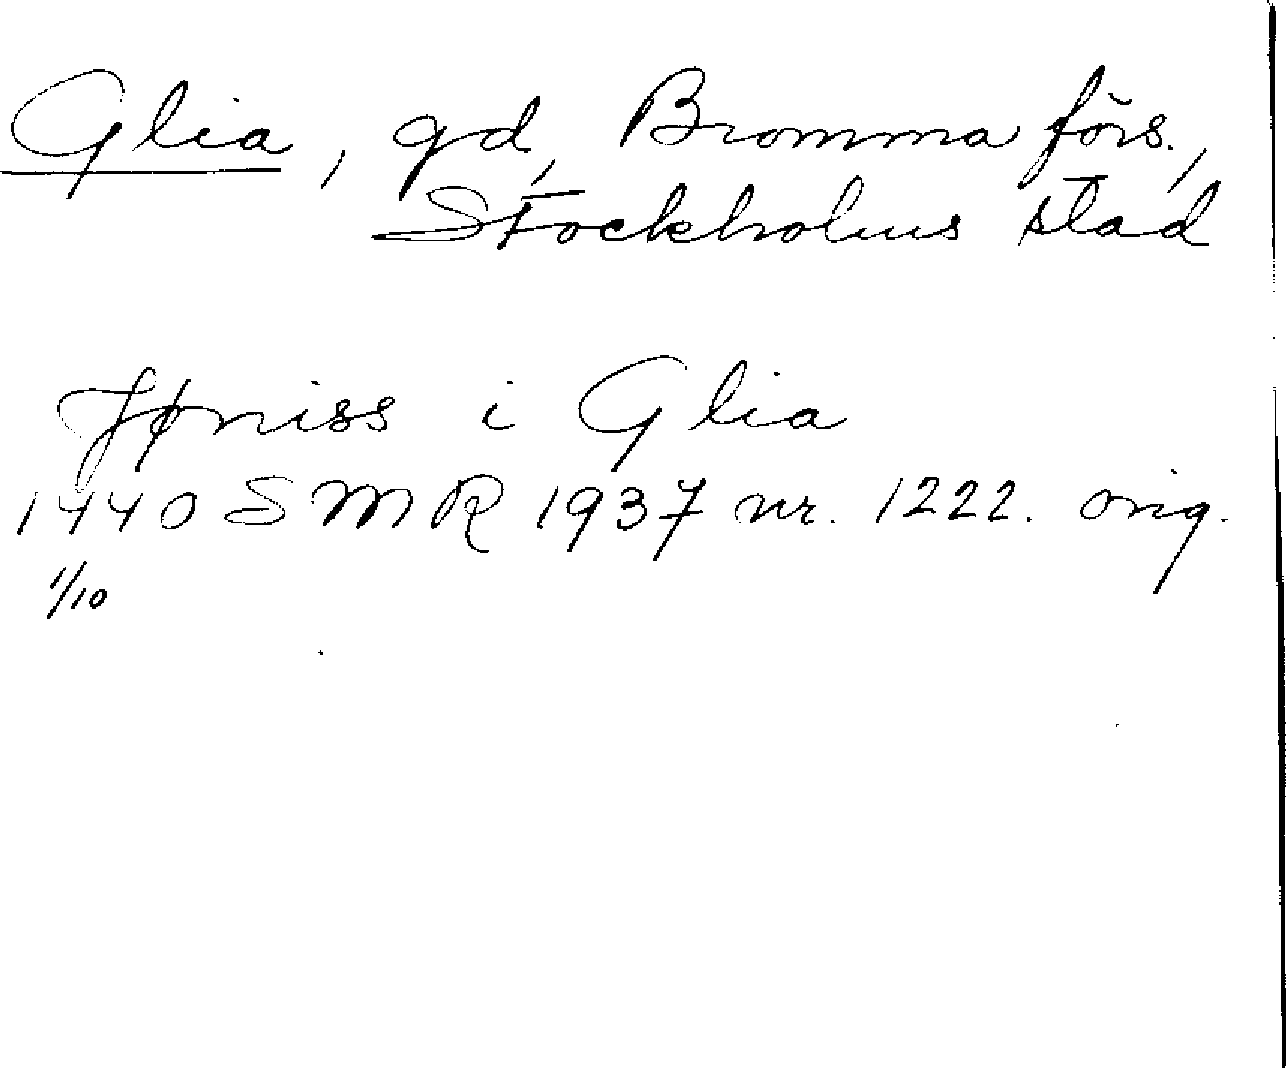 Glia, gd, Bromma förs.,
Stockholms stad
Jøniss i Glia
1440 SMR 1937 nr. 1222. orig.
1/10